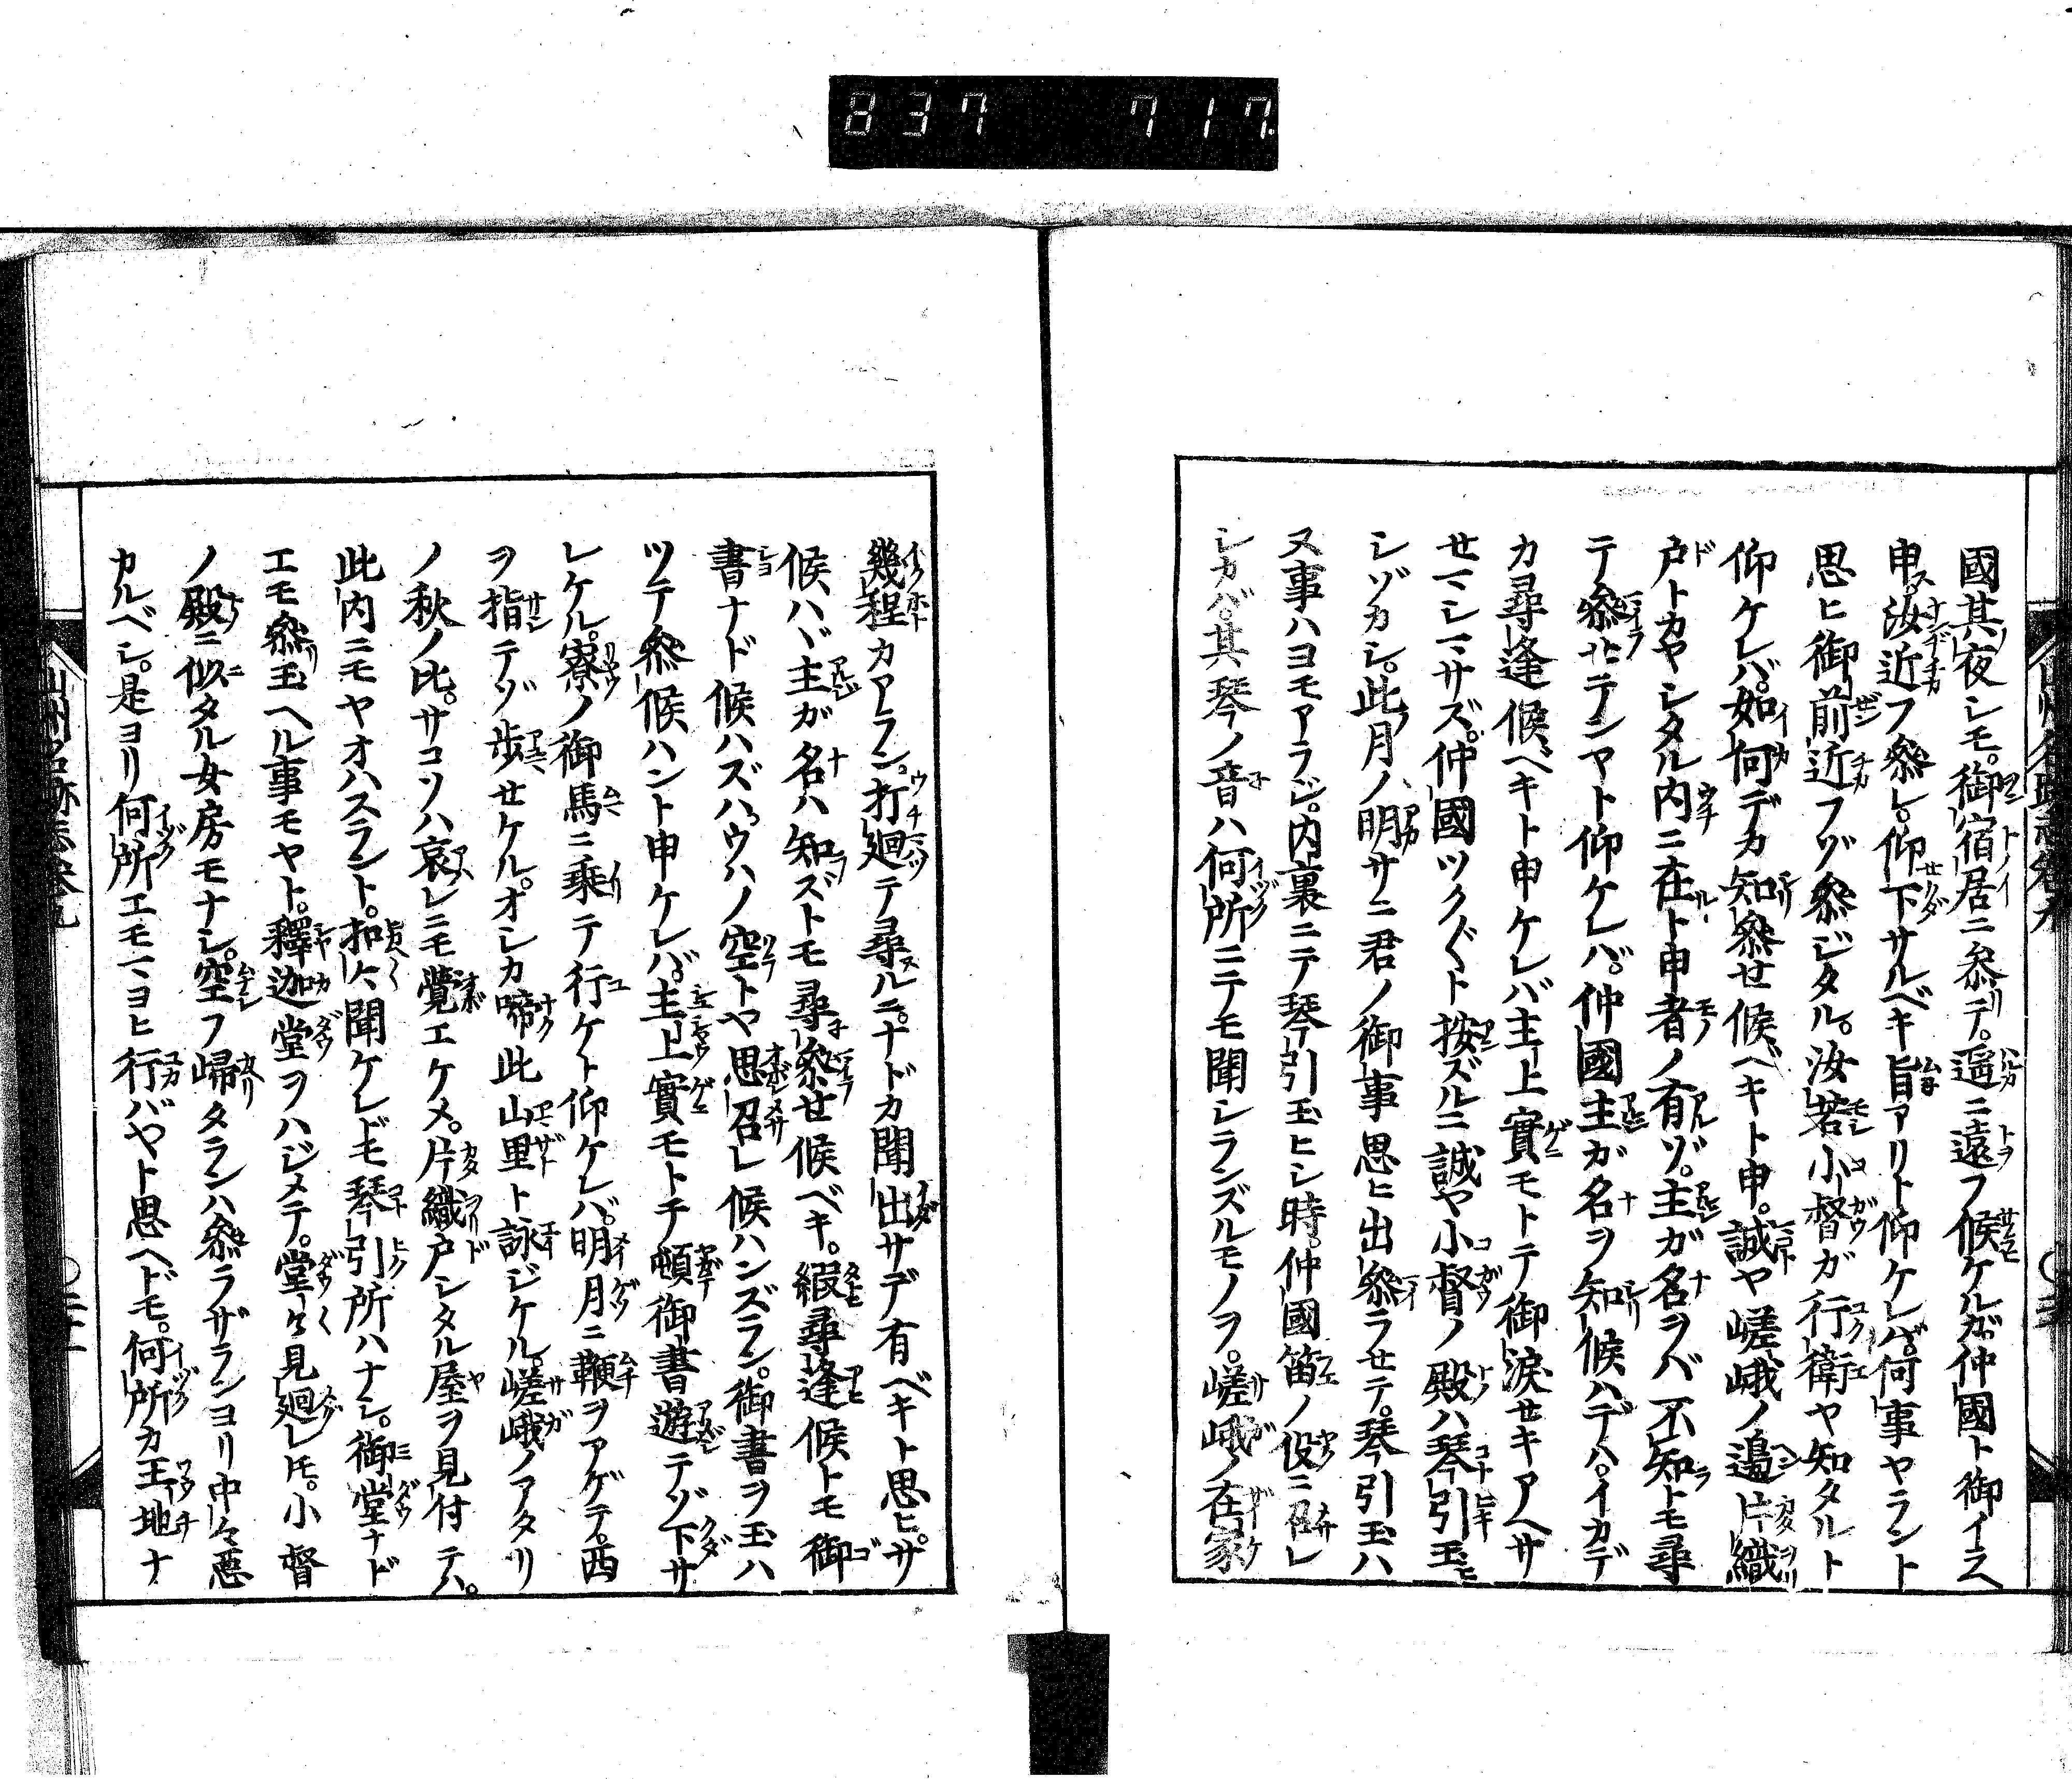 837 717
國其夜シモ。御宿居ニ參テ。遥ニ遠フ候ケルガ。仲國ト御イラヘ
申ス。汝近フ參レ。仰下サルベキ旨アリト仰ケレバ。何事ヤラント
思ヒ御前近フゾ參ジタル。汝若小督ガ行衛ヤ知タルト
仰ケレバ。如何デカ知參セ候ベキト申。誠ヤ嵯峨ノ邉片織
戸トカヤシタル内ニ在ト申者ノ有ゾ。主ガ名ヲバ不知トモ尋
テ參セテンヤト仰ケレバ。仲國主ガ名ヲ知候ハデハ。イカデ
カ尋逢候ベキト申ケレバ主上實モトテ御淚セキアヘサ
セマシマサズ。仲國ツクぐト按ズルニ誠ヤ小督ノ殿ハ琴引玉ヒ
シゾカシ。此月ノ明サニ君ノ御事思ヒ出參ラセテ。琴引玉ハ
ヌ事ハヨモアラジ。内裏ニテ琴引玉ヒシ時。仲國笛ノ役ニ召レ
シカバ。其琴ノ音ハ何所ニテモ聞シランズルモノヲ。嵯峨ノ在家
幾程カアラン。打廻テ尋ルニ。ナドカ聞出サデ有ベキト思ヒ。サ
候ハヾ主ガ名ハ知ズトモ尋參セ候ベキ。縱尋逢候トモ御
書ナド候ハズハ。ウハノ空トヤ思召レ候ハンズラン。御書ヲ玉ハ
ツテ參候ハント申ケレバ。主上實モトテ頓御書遊テゾ下サ
レケル。寮ノ御馬ニ乗テ行ケト仰ケレバ。明月ニ鞭ヲアゲテ。西
ヲ指テゾ歩セケル。オシカ啼此山里ト詠ジケル。嵯峨ノアタリ
ノ秋ノ比。サコソハ哀レニモ覺エケメ。片織戸シタル屋ヲ見付テハ。
此内ニモヤオハスラント。扣ヘ〳〵聞ケレドモ琴引所ハナシ。御堂ナド
エモ參玉ヘル事モヤト。釋迦堂ヲハジメテ。堂々見廻レ𪜈。小督
ノ殿ニ似タル女房モナシ。空フ歸タランハ參ラザランヨリ中々惡
カルベシ。是ヨリ何所エモマヨヒ行バヤト思ヘドモ。何所カ王地ナ